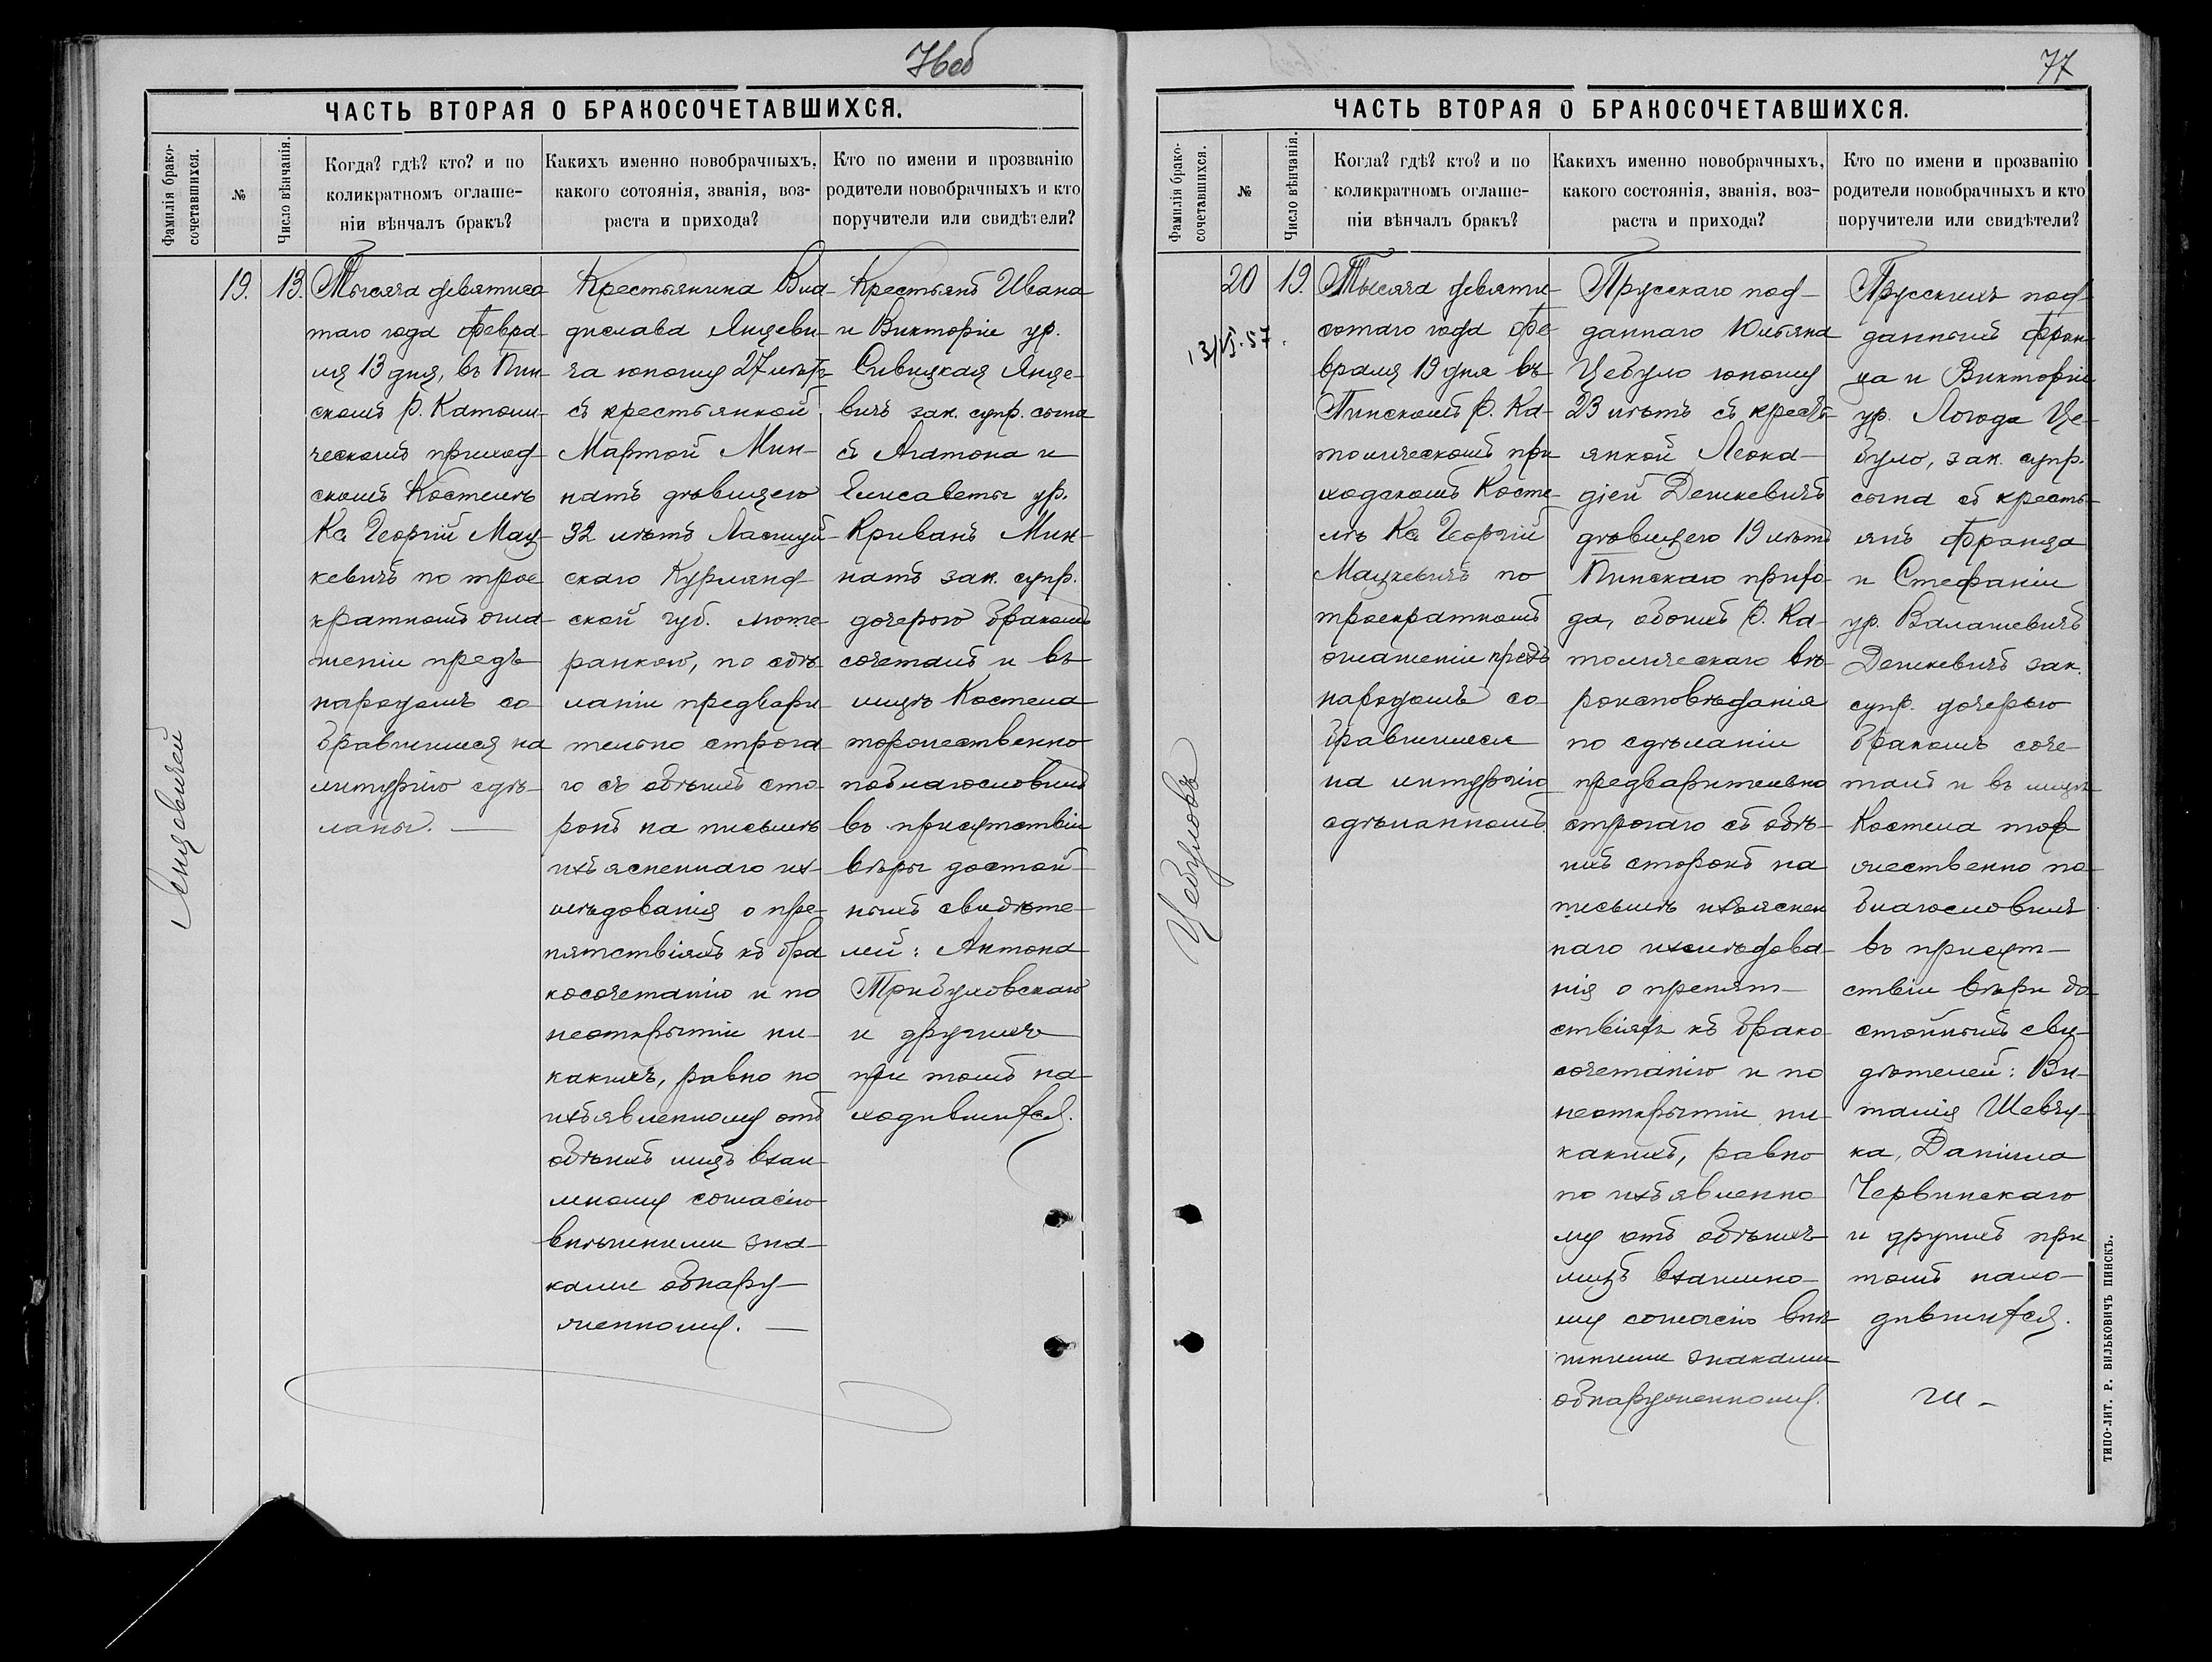 76об
ЧАСТЬ ВТОРАЯ О БРАКОСОЧЕТАВШИХСЯ.
Фамилія брако-
сочетавшихся.
№
Число вѣнчанія.
Когда? гдѣ? кто? и по
коликратномъ оглаше-
ніи вѣнчалъ бракъ?
Какихъ именно новобрачныхъ,
какого сотоянія, званія, воз-
раста и прихода?
Кто по имени и прозванію
родители новобрачныхъ и кто
поручители или свидѣтели?
19.
13.
Тысяча девятисо
таго года Февра-
ля 13 дня, въ Пин-
скомъ Р. Католи-
ческомъ приход-
скомъ Костелѣ
Кс. Георгій Мац-
кевичъ по трое
кратномъ огла-
шеніи предъ
народомъ со-
бравшимся на
литургію сдѣ-
ланы.
Крестьянина Вла-
дислава Янцеви-
ча юношу 27 лѣтъ
съ крестьянкой
Мартой Мин-
натъ дѣвицею
32 лѣтъ
скаго Курлянд-
ской губ. люте-
ранкою, по сдѣ-
ланіи предвари-
тельно строга-
го съ обѣихъ сто-
ронъ на письмѣ
изъясненнаго из-
слѣдованія о пре-
пятствіяхъ къ бра
косочетанію и по
неоткрытіи ни-
какихъ, равно по
изъявленному отъ
обѣихъ лицъ взаи-
мному согласію
внѣшними зна-
ками обнару-
женному.
Крестьянъ Ивана
и Викторіи ур.
Сивицкая Янце-
вичъ зак. супр. сына
съ Антона и
Елисаветы ур.
Криванъ Мин-
натъ зак. супр.
дочерью бракомъ
сочеталъ и въ
лицѣ Костела
торжественно
поблагословилъ
въ присутствіи
вѣры достой-
ныхъ свидѣте-
лей: Антона
Трибуховскаго
и другихъ
при томъ на-
ходившихся.
Янцевичей
77
ЧАСТЬ ВТОРАЯ О БРАКОСОЧЕТАВШИХСЯ.
Фамилія брако-
сочетавшихся.
№
Число вѣнчанія.
Когда? гдѣ? кто? и по
коликратномъ оглаше-
ніи вѣнчалъ бракъ?
Какихъ именно новобрачныхъ,
какого состоянія, званія, воз-
раста и прихода?
Кто по имени и прозванію
родители новобрачныхъ и кто
поручители или свидѣтели?
20
19.
Тысяча девяти-
сотаго года Фе-
враля 19 дня въ
Пинскомъ Р. Ка-
толическомъ при
ходскомъ Косте-
лѣ Кс. Георгій
Мацкевичъ по
троекратномъ
оглашеніи предъ
народомъ со-
бравшимся
на литургію
сдѣланномъ.
Прусскаго под-
даннаго Юльяна
Цебуло юношу
23 лѣтъ съ кресть-
янкой Леока-
діей Дешкевичъ
дѣвицею 19 лѣтъ
Пинскаго прихо-
да, обоихъ Р. Ка-
толическаго вѣ-
роисповѣданія
по сдѣланіи
предварительно
строгаго съ обѣ-
ихъ сторонъ на
письмѣ изъяснен
наго изслѣдова-
нія о препят-
ствіяхъ къ брако-
сочетанію и по
неоткрытіи ни-
какихъ, равно
по изъявленно
му отъ обѣихъ
лицъ взаимно-
му согласію внѣ-
шними знаками
обнаруженному.
Прусскихъ под-
данныхъ Фран-
ца и Викторіи
ур. Логода Це-
було, зак. супр.
сына съ кресть-
янъ Франца
и Стефаніи
ур. Валашевичъ
Дешкевичъ зак.
супр. дочерью
бракомъ соче-
талъ и въ лицѣ
Костела тор
жественно по-
благословилъ
въ присут-
ствіи вѣри до-
стойныхъ сви-
дѣтелей: Ви-
талія Шевчу-
ка, Даніила
Червинскаго
и другихъ при
томъ нахо-
дившихся.
Цебуловъ
ТИПО-ЛИТ. Р. ВИЛЬКОВИЧЪ ПИНСКЪ.